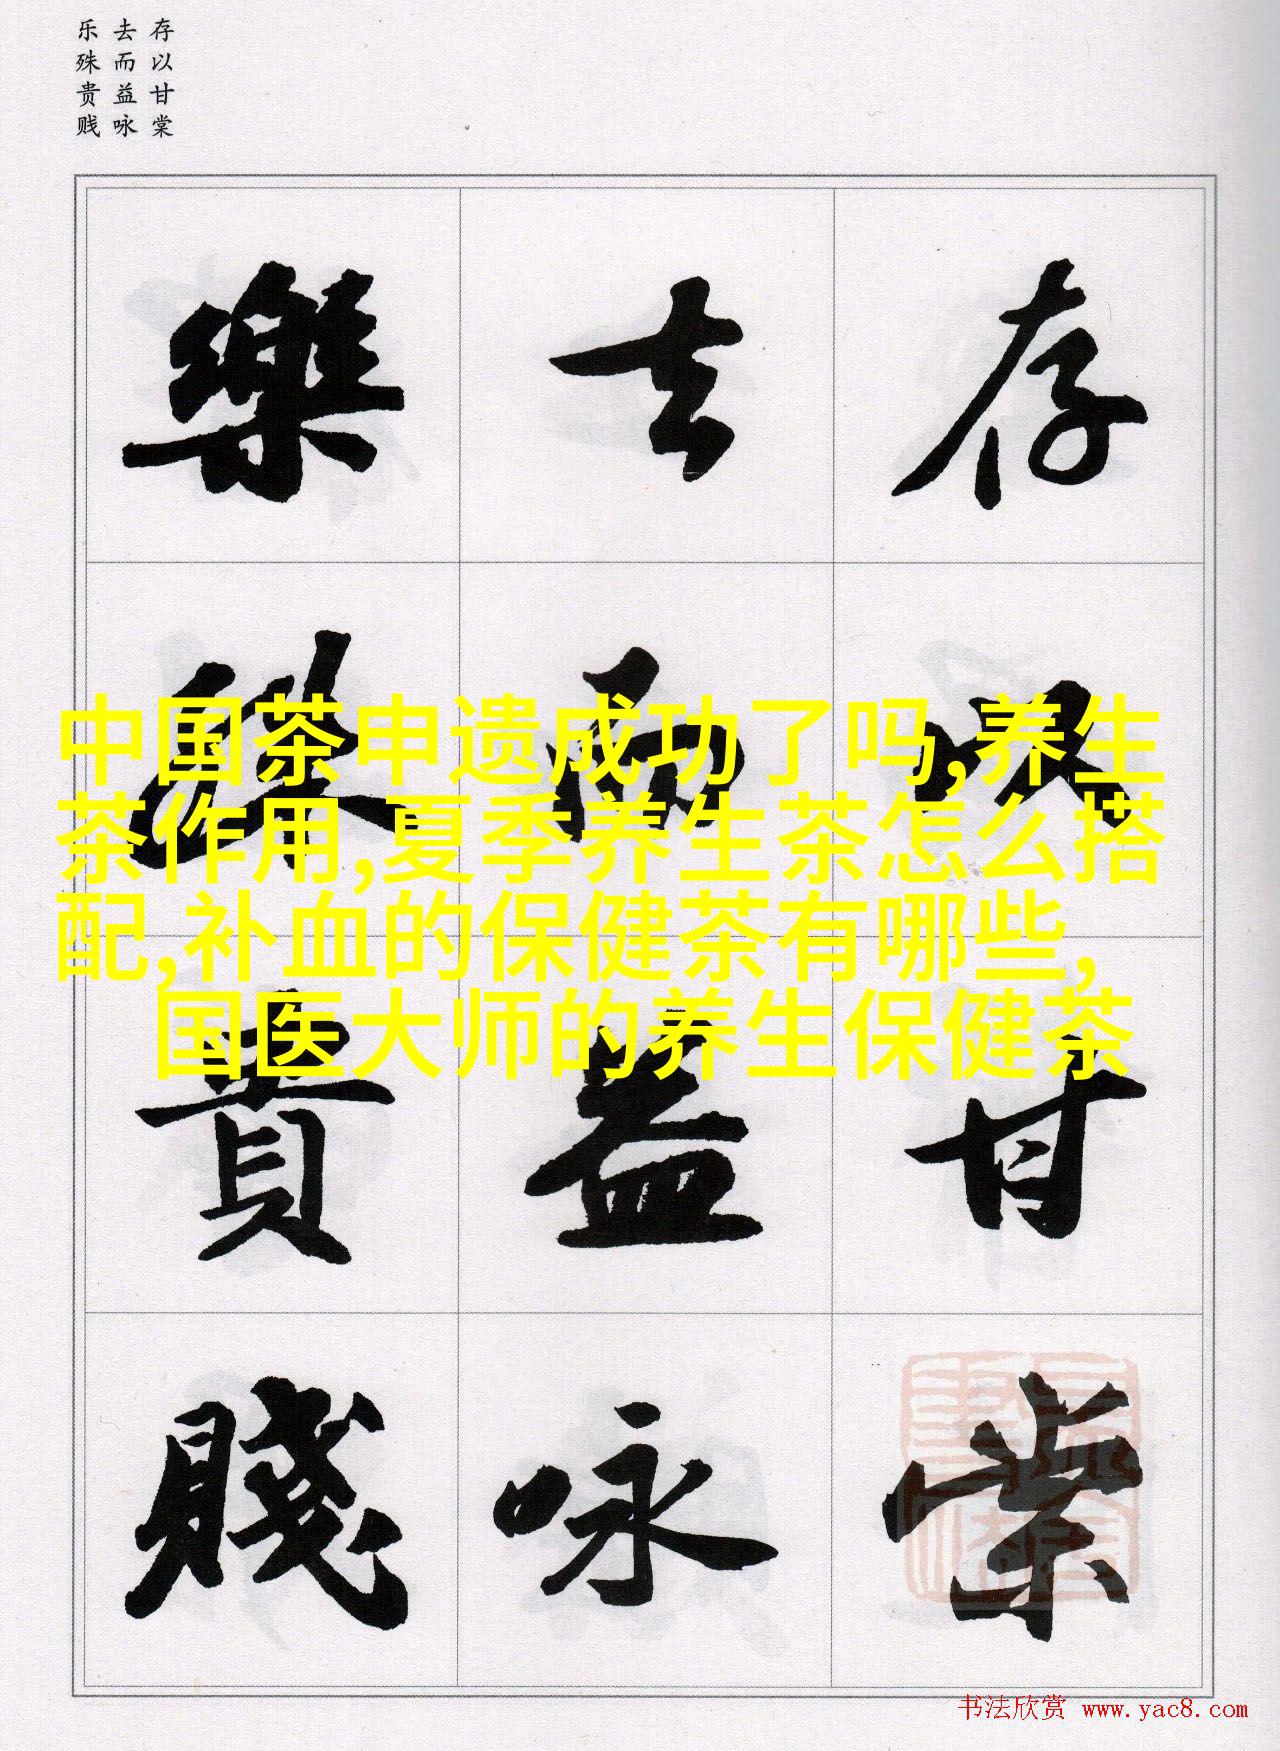 存以甘棠
去而益咏
乐殊贵贱
存以甘棠
去而益咏
樂殊貴賤
中国茶申遗成功了吗,养生
茶作用,夏季养生茶怎么搭
配,补血的保健茶有哪些,
国医大师的养生保健茶
书法欣赏 www.yac8.com